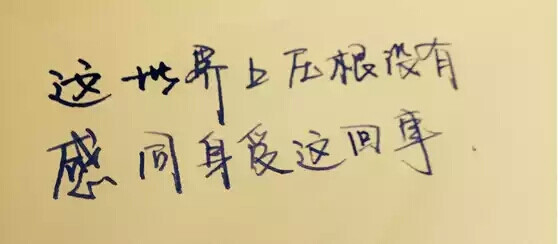 这世界上压根没有
感同身受这回事.